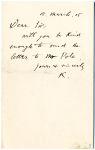 12 March, 15
Dear Sir,
will you be kind
enough to send the
letter to Mr Pole
yours sincerely
R.